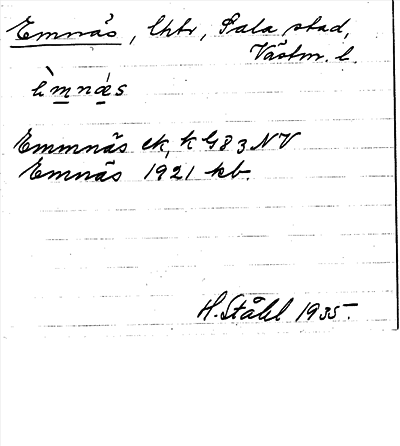 Emnäs, lht, Sala stad,
Västm. l.
èmnæ̀s
Emmnäs ek, k G83 NV
Emnäs 1921 kb.
H. Ståhl 1935.